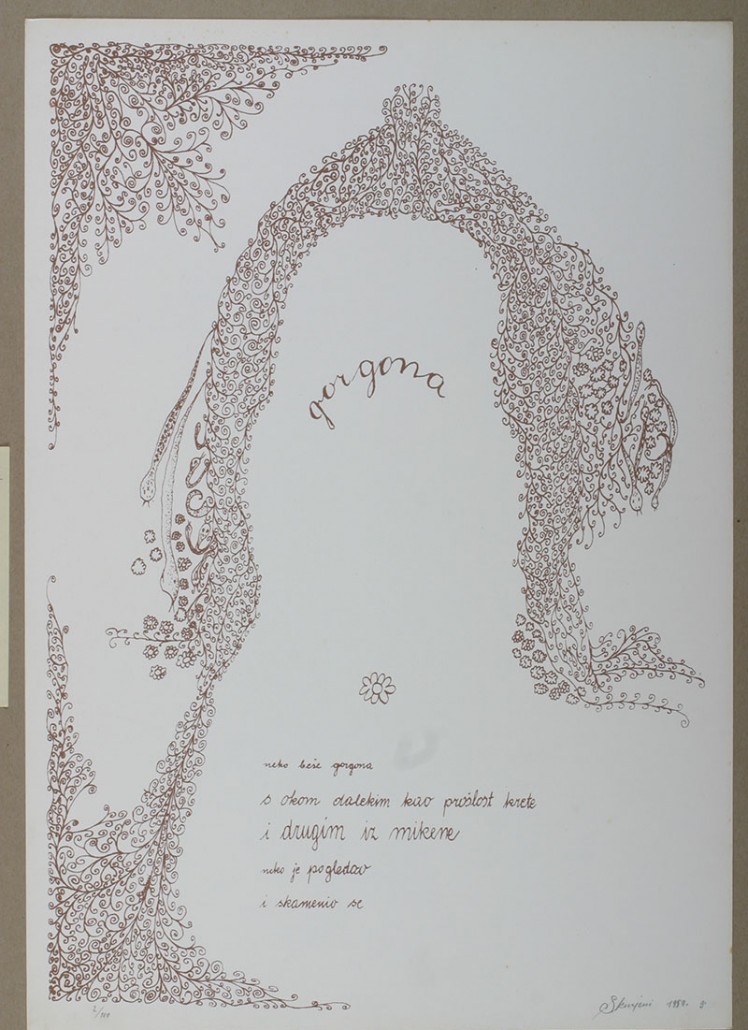 gorgona
neko beše gorgona
s okom dalekim kao prošlost krete
i drugim iz mikene
neko je pogledao
i skamenio se